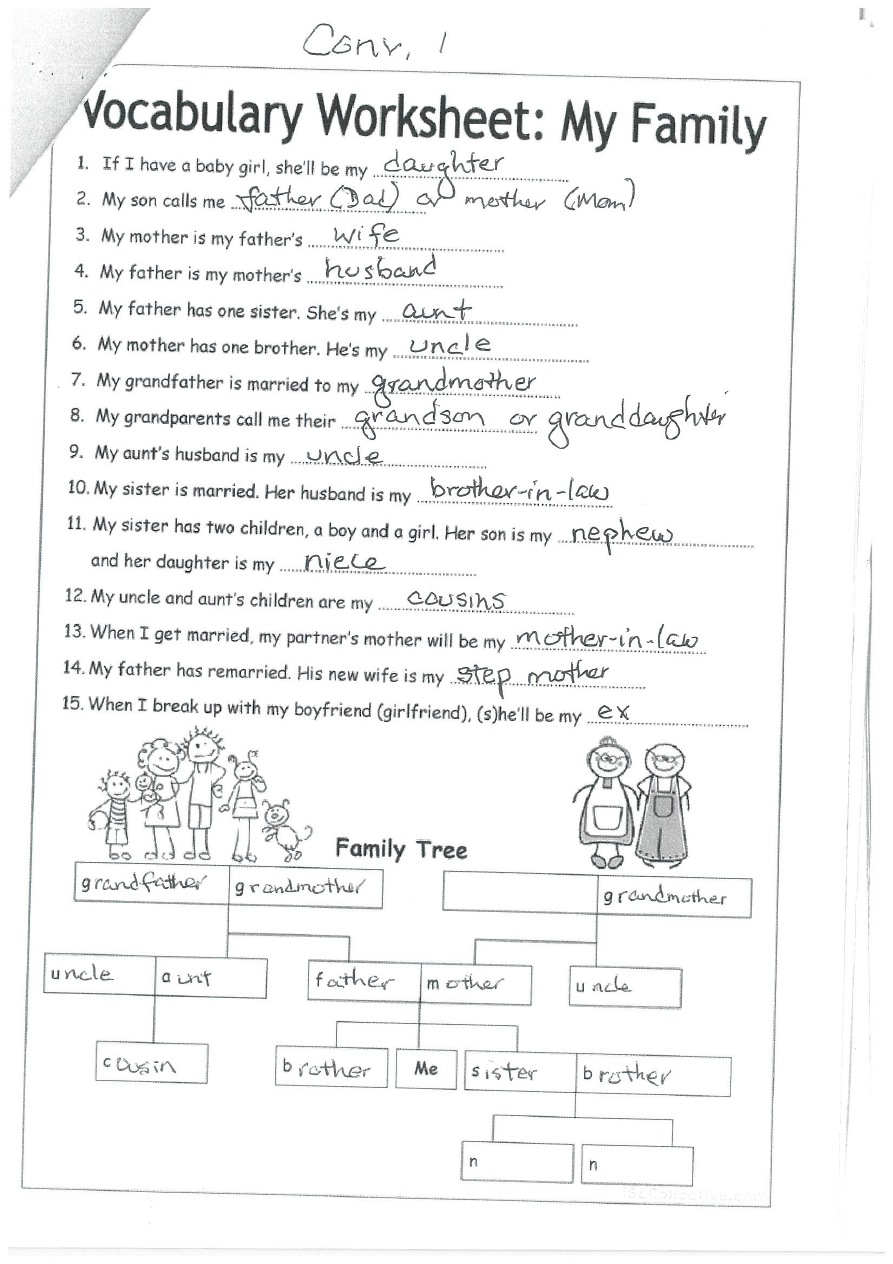 Conv. 1
Vocabulary Worksheet: My Family
1. If I have a baby girl, she'll be my daughter
2. My son calls me father (Dad) or mother (Mom)
3. My mother is my father's wife
4. My father is my mother's husband
5. My father has one sister. She's my aunt
6. My mother has one brother. He's my uncle
7. My grandfather is married to my grandmother
8. My grandparents call me their grandson or granddaughter
9. My aunt's husband is my uncle
10. My sister is married. Her husband is my brother-in-law
11. My sister has two children, a boy and a girl. Her son is my nephew
and her daughter is my niece
12. My uncle and aunt's children are my cousins
13. When I get married, my partner's mother will be my mother-in-law
14. My father has remarried. His new wife is my step mother
15. When I break up with my boyfriend (girlfriend), (s)he'll be my ex
Family Tree
grandfather grandmother grandmother
uncle aunt father mother uncle
cousin brother Me sister brother
n n
iSLCollective.com